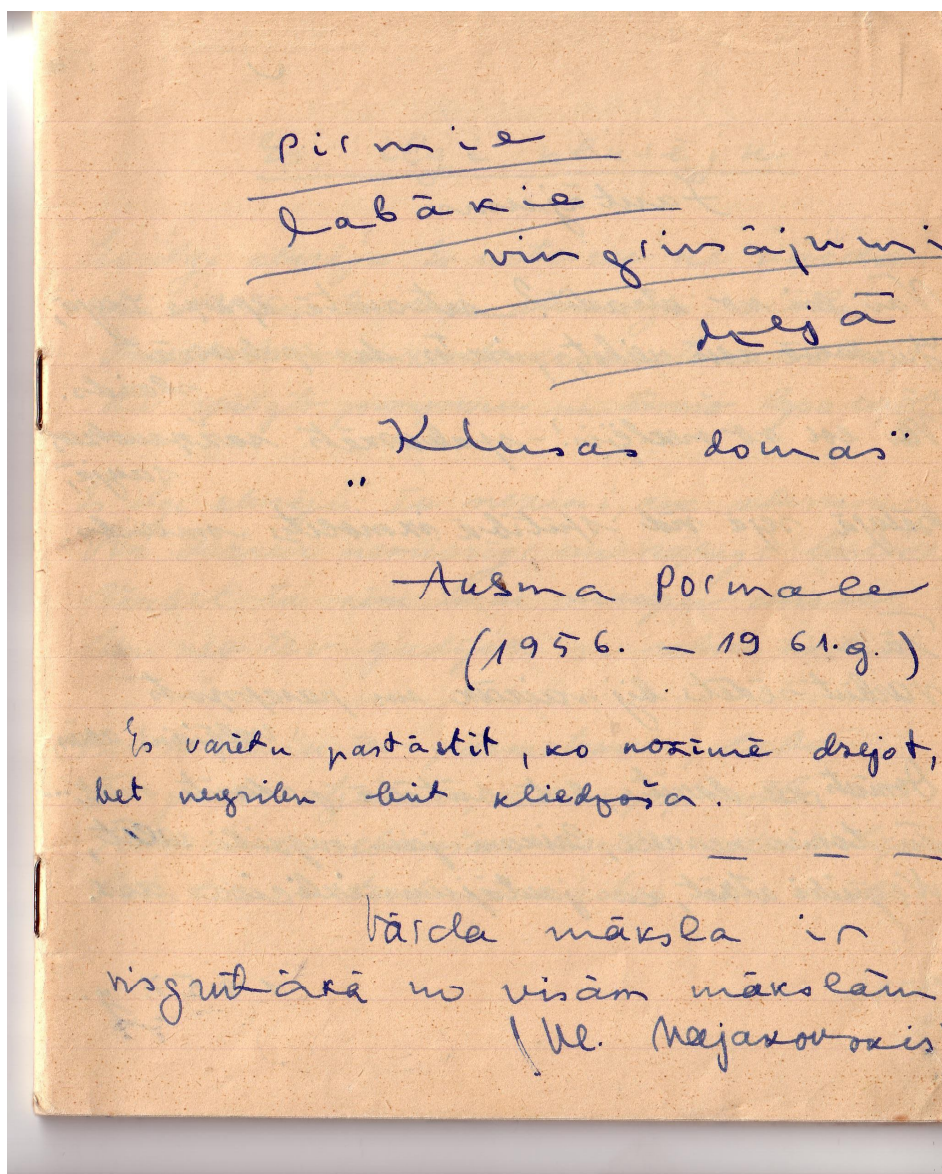 Pirmie
labākie
vingrinājumi
dzejā
"Klusas domas"
Ausma Pormale
(1956. – 1961.g.)
Es varētu pastāstīt, ko nozīmē dzejot,
bet negribu būt kliedzoša.
— — —
Vārda māksla ir
visgrūtākā no visām mākslām
(Vl. Majakovskis